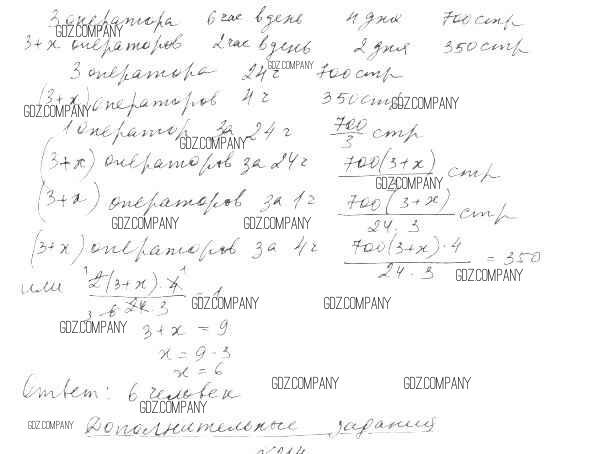 3 оператора 6 час в день 4 дня 700 стр
GDZ.COMPANY
3+x операторов 2 час в день 2 дня 350 стр
3 оператора 24 ч 700 стр
GDZ.COMPANY
(3+x) операторов 4 ч 350 стр
GDZ.COMPANY GDZ.COMPANY
1 оператор за 24 ч 700/3 стр
GDZ.COMPANY
(3+x) операторов за 24 ч 700(3+x)/3 стр
GDZ.COMPANY
(3+x) операторов за 1 ч 700(3+x)/24·3 стр
GDZ.COMPANY GDZ.COMPANY
(3+x) операторов за 4 ч 700(3+x)·4/24·3 = 350
GDZ.COMPANY
или 2(3+x)·4/24·3 = 1
GDZ.COMPANY GDZ.COMPANY
GDZ.COMPANY 3+x = 9
x = 9-3
x = 6
GDZ.COMPANY GDZ.COMPANY
Ответ: 6 человек
GDZ.COMPANY
GDZ.COMPANY Дополнительные задания